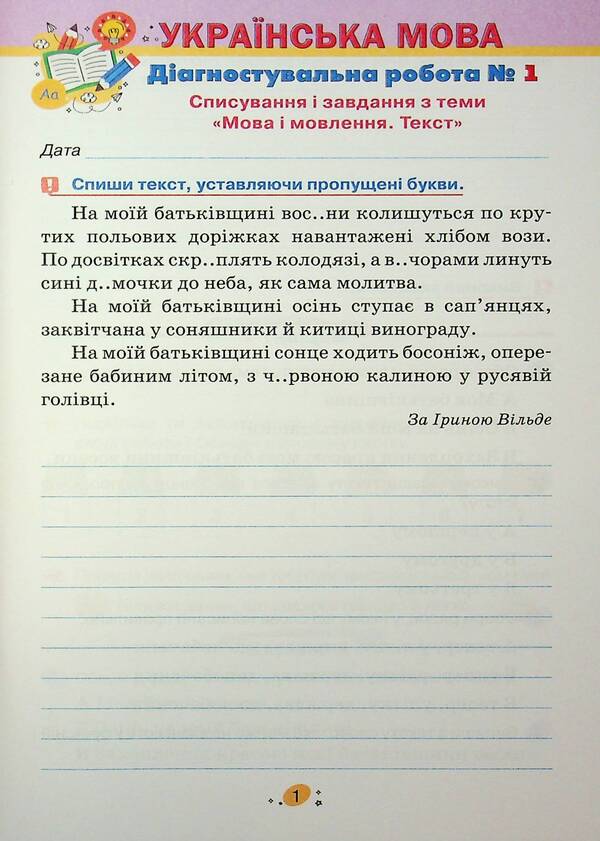 УКРАЇНСЬКА МОВА
Діагностувальна робота № 1
Списування і завдання з теми
«Мова і мовлення. Текст»
Аа
Дата
Спиши текст, уставляючи пропущені букви.
На моїй батьківщині вос..ни колишуться по кру-
тих польових доріжках навантажені хлібом вози.
По досвітках скр..плять колодязі, а в..чорами линуть
сині д..мочки до неба, як сама молитва.
На моїй батьківщині осінь ступає в сап’янцях,
заквітчана у соняшники й китиці винограду.
На моїй батьківщині сонце ходить босоніж, опере-
зане бабиним літом, з ч..рвоною калиною у русявій
голівці.
За Іриною Вільде
1